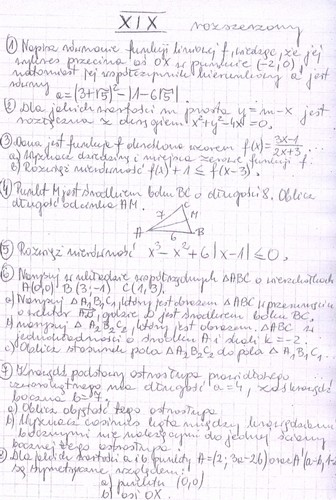 XIX rozszerzony
① Napisz równanie funkcji liniowej f, wiedząc, że jej
wykres przecina oś OX w punkcie (-2; 0)
natomiast jej współczynnik kierunkowy a jest
równy
a = (3+√5)² - |1-6√5|.
② Dla jakich wartości m prosta y = m-x jest
rozłączna z okręgiem x²+y²-4x=0.
③ Dana jest funkcja f określona wzorem f(x)= 3X-1 / 2X+3
a) Wyznacz dziedzinę i miejsca zerowe funkcji f.
b) Rozwiąż nierówność f(x)+1 ≤ f(x-3).
④ Punkt M jest środkiem boku BC o długości 8. Oblicz
długość odcinka AM.
C
7 M
A 6 B
⑤ Rozwiąż nierówność x³-x²+6|x-1| ≤ 0.
⑥ Narysuj w układzie współrzędnych ΔABC o wierzchołkach
A(0,0) B(3;-1) C(1,3).
a) Narysuj ΔA₁B₁C₁, który jest obrazem ΔABC w przesunięciu
o wektor AD, gdzie D jest środkiem boku BC.
b) Narysuj Δ A₂B₂C₂, który jest obrazem ΔABC w
jednokładności o środku A i skali k=-2.
c) Oblicz stosunek pola ΔA₂B₂C₂ do pola ΔA₁B₁C₁.
⑦ Krawędź podstawy ostrosłupa prawidłowego
czworokątnego ma długość a=4, zaś krawędź
boczna b=7.
a) Oblicz objętość tego ostrosłupa
b) Wyznacz cosinus kąta między krawędziami
bocznymi nie należącymi do jednej ściany
bocznej tego ostrosłupa.
Dla jakich wartości a i b punkty A=(2; 3a-2b) oraz A'(a-b,
są symetryczne względem:
a) punktu (0,0)
b) osi OX.